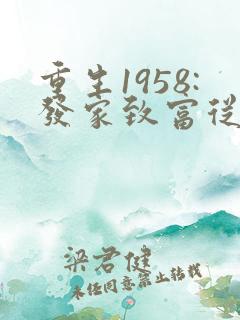 重生1958:
發家致富從
梁君健
未經同意禁止轉載